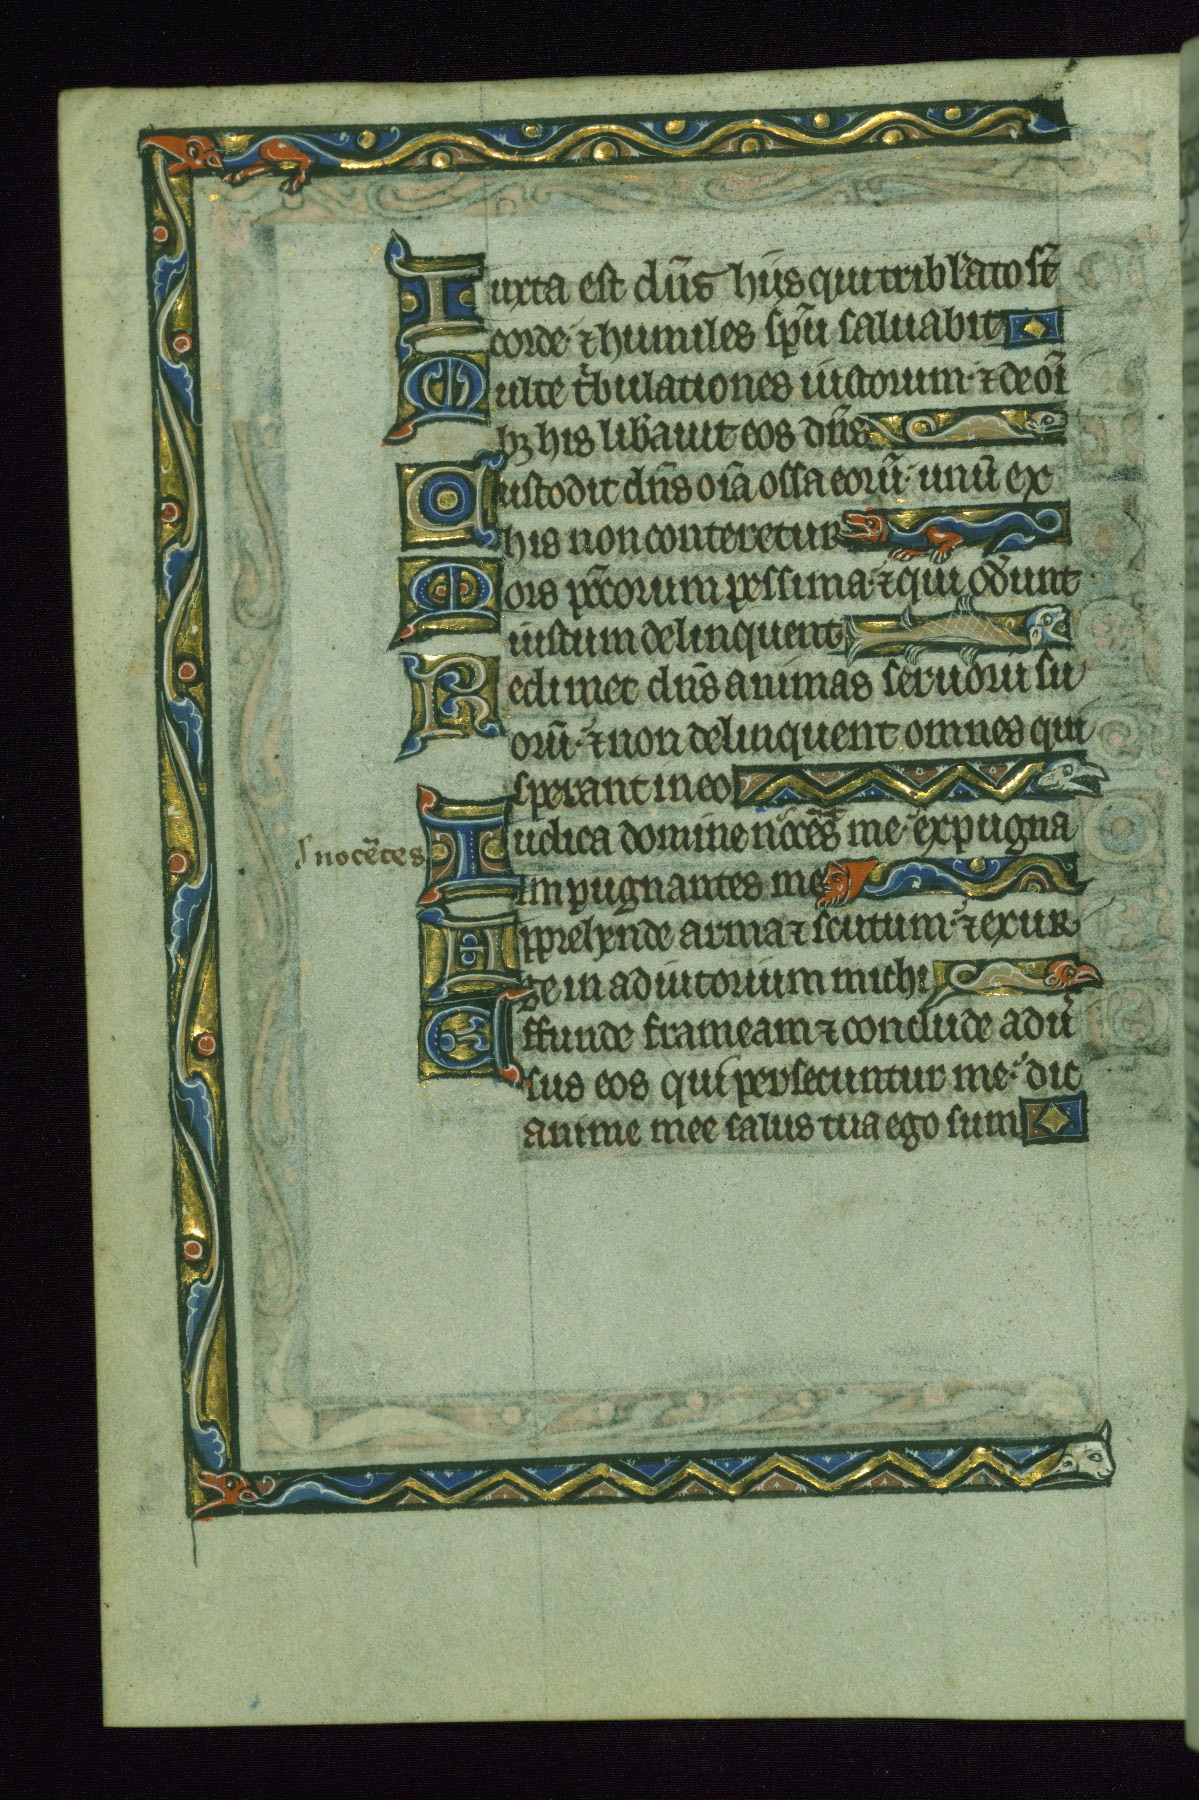 Iuxta est dn̄s hijs qui tribl̄ato st̄
corde· ⁊ humiles sp̄u saluabit
Multe t̄bulationes iustorum· ⁊ de oī
bꝫ his lib̄auit eos dn̄s
Custodit dn̄s oīa ossa eorū· unū ex
his non conteretur
Mors pc̄corum pessima· ⁊ qui od̄unt
iustum delinquent
Redimet dn̄s animas seruorū su
orū· ⁊ non delinquent omnes qui
sperant in eo
Iudica domine nōcēs me· expugna
nocētes
impugnantes me
Apprehende arma ⁊ scutum· ⁊ exur
ge in adiutorium michi
Effunde frameam ⁊ conclude adū
sus eos qui persecuntur me· dic
anime mee salus tua ego sum